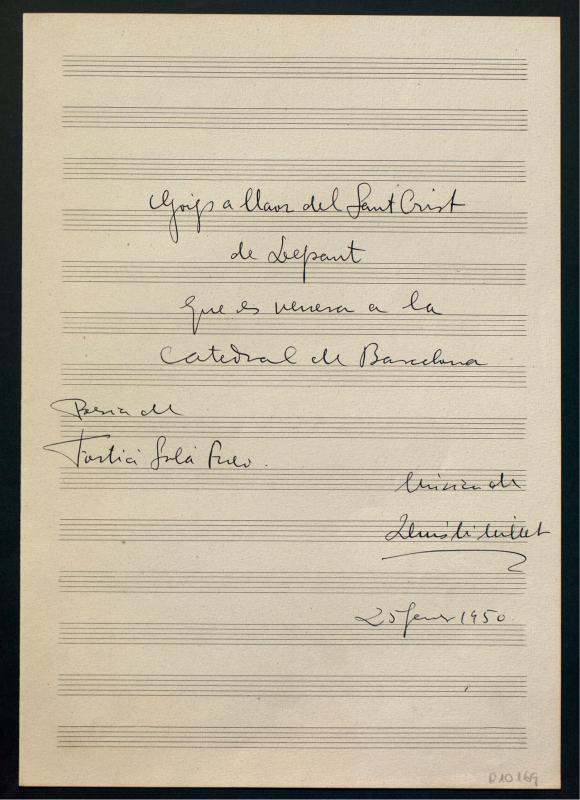 Goigs a llaor del Sant Crist
de Lepant
que es venera a la
Catedral de Barcelona
Poesia de
Fortià Solà Prev.
Música de
Lluís Mª Millet
25 gener 1950.
D 10 169